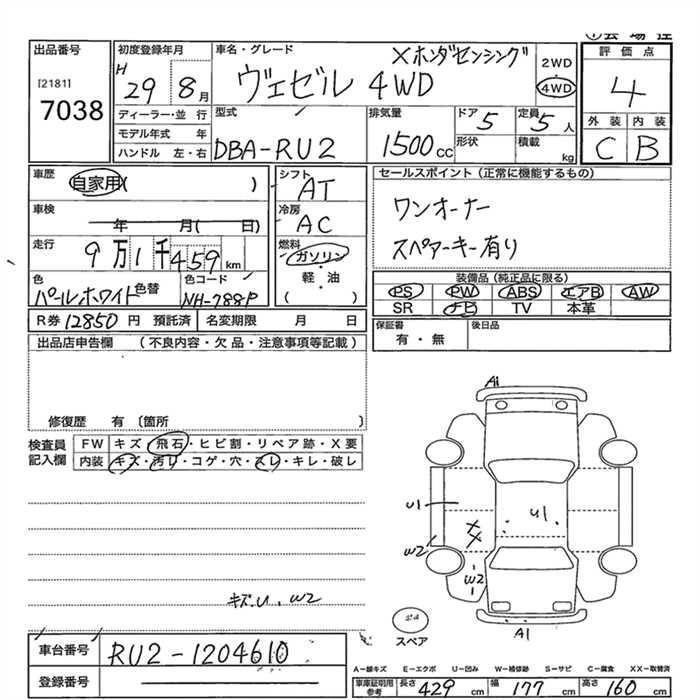 ①会場控
出品番号
[2181]
7038
初度登録年月
H 29 8月
ディーラー・並 行
モデル年式 年
ハンドル 左・右
車名・グレード
Xホンダセンシング
ヴェゼル 4WD
2WD
4WD
型式
DBA-RU2
排気量
1500cc
ドア 5
形状
定員 5人
積載 kg
評価点
4
外装 内装
C B
車歴
自家用( )
車検
年 月( 日)
走行
9万1千459km
色
パールホワイト
色替
色コード
NH-788P
シフト
AT
冷房
AC
燃料
ガソリン
軽・油
( )
セールスポイント(正常に機能するもの)
ワンオーナー
スペアーキー有り
装備品(純正品に限る)
PS PW ABS エアB AW
SR ナビ TV 本革
R券 12850円 預託済 名変期限 月 日
保証書
有・無
後日品
出品店申告欄 (不良内容・欠品・注意事項等記載)
修復歴 有〔箇所 〕
検査員
記入欄
FW キズ・飛石・ヒビ割・リペア跡・X要
内装 キズ・汚れ・コゲ・穴・スレ・キレ・破レ
キズ、U、W2
A1
U1
U1
W2
XX
W2
A1
スペア
車台番号 RU2-1204610
登録番号
A-線キズ E-エクボ U-凹み W-補修跡 S-サビ C-腐食 XX-取替済
車庫証明用
参考
長さ 429cm 幅 177cm 高さ 160cm